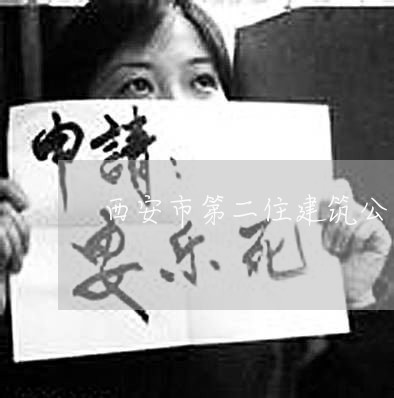 申請：
西安市第二住建筑公
要乐死